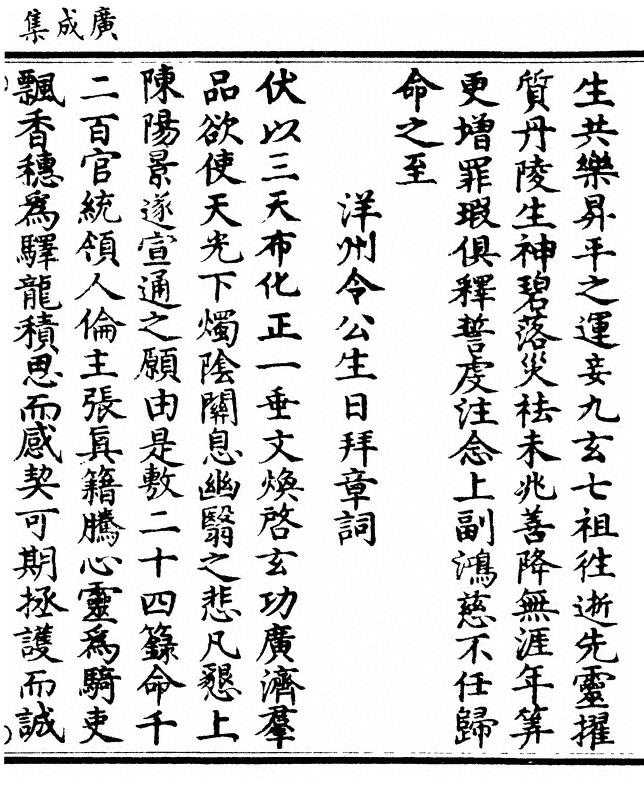 廣成集
生共樂昇平之運妾九玄七祖徃逝先靈擢
質丹陵生神碧落災祛未兆善降無涯年筭
更增罪瑕俱釋誓虔注念上副鴻慈不任歸
命之至
洋州令公生日拜章詞
伏以三天布化正一垂文煥啓玄功廣濟羣
品欲使天光下燭陰關息幽翳之悲凡懇上
陳陽景遂宣通之願由是敷二十四籙命千
二百官統領人倫主張眞籍騰心靈爲騎吏
飄香穗爲驛龍積思而感契可期拯護而誠